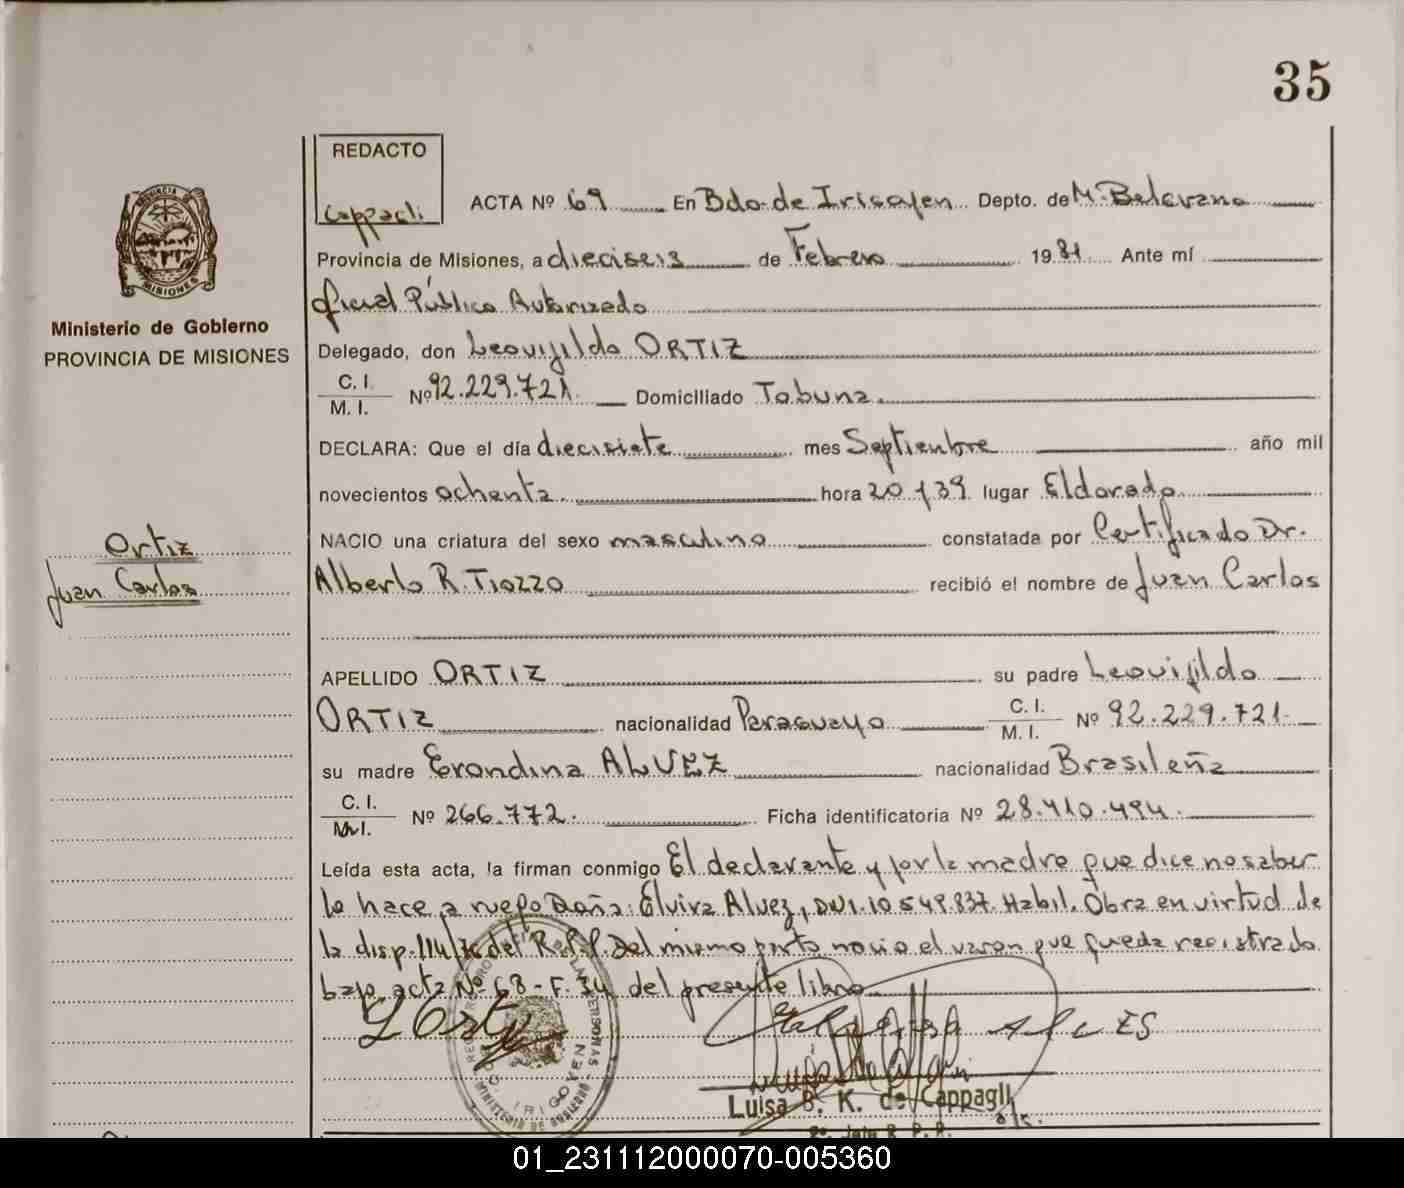 35
REDACTO
Cappagli
PROVINCIA DE
MISIONES
Ministerio de Gobierno
PROVINCIA DE MISIONES
ACTA Nº 69 En Bdo. de Irigoyen Depto. de M. Belgrano
Provincia de Misiones, a dieciseis de Febrero 1981 Ante mí
Oficial Público Autorizado
Delegado, don Leovijildo ORTIZ
C. I.
M. I. Nº 92.229.721 Domiciliado Tobuna.
DECLARA: Que el día diecisiete mes Septiembre año mil
novecientos ochenta hora 20,39 lugar Eldorado
NACIO una criatura del sexo masculino constatada por Certificado Dr.
Alberto R. Tiozzo recibió el nombre de Juan Carlos
Ortiz
Juan Carlos
APELLIDO ORTIZ su padre Leovijildo
ORTIZ nacionalidad Paraguayo C. I.
M. I. Nº 92.229.721
su madre Erondina ALVEZ nacionalidad Brasileña
C. I.
M. I. Nº 266.772. Ficha identificatoria Nº 28.410.494.
Leída esta acta, la firman conmigo El declarante y por la madre que dice no saber
lo hace a ruego Doña: Elvira Alvez, DNI. 10.549.837. Habil. Obra en virtud de
la disp. 114/76 del R.P.P. Del mismo parto nacio el varon que queda registrado
bajo acta Nº 68 - F. 34 del presente libro
L Ortiz
ALVES
REGISTRO PROVINCIAL DE LAS PERSONAS
IRIGOYEN
MINISTERIO DE GOBIERNO
Luisa B. K. de Cappagli
2º Jefe R. P. P.
01_231112000070-005360